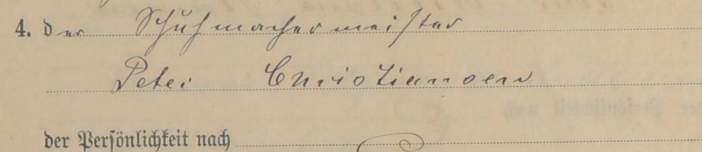 4. der Schuhmachermeister
Peter Christiansen
der Persönlichkeit nach